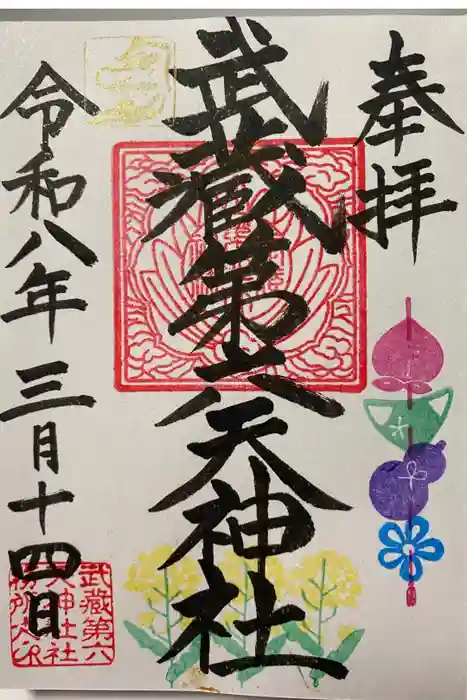 奉拝
武蔵第六天神社
令和八年三月十四日
武蔵第六
天神社社
務所之印